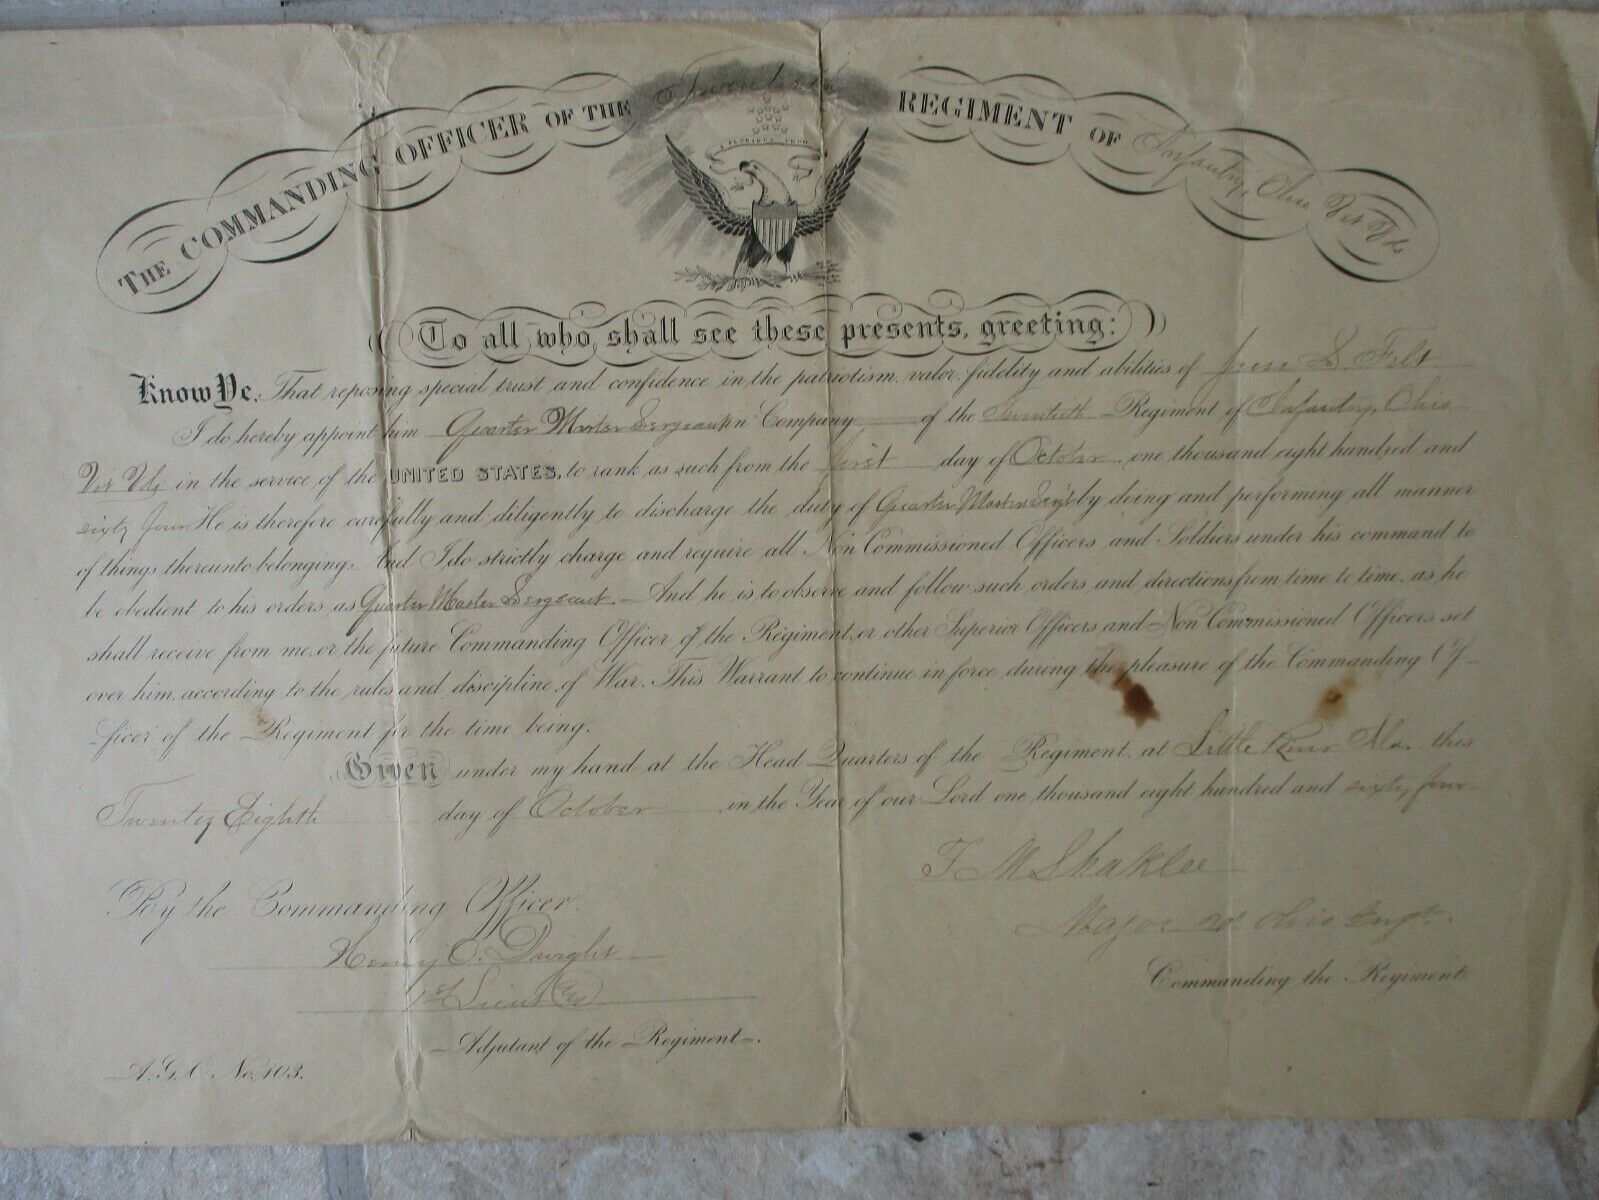 THE COMMANDING OFFICER OF THE Twentieth REGIMENT OF Infantry, Ohio Vet Vols
E PLURIBUS UNUM
To all who shall see these presents, greeting:
Know Ye, That reposing special trust and confidence in the patriotism, valor, fidelity and abilities of S. Felt
I do hereby appoint him Quarter Master Sergeant in Company of the Twentieth Regiment of Infantry, Ohio
Vet Vols in the service of the UNITED STATES, to rank as such from the first day of October, one thousand eight hundred and
sixty four He is therefore carefully and diligently to discharge the duty of Quarter Master Serg't by doing and performing all manner
of things thereunto belonging. And I do strictly charge and require all Non Commissioned Officers and Soldiers under his command to
be obedient to his orders as Quarter Master Sergeant. And he is to observe and follow such orders and directions from time to time, as he
shall receive from me, or the future Commanding Officer of the Regiment, or other Superior Officers and Non Commissioned Officers set
over him, according to the rules and discipline of War. This Warrant to continue in force during the pleasure of the Commanding Of-
ficer of the Regiment for the time being.
Given under my hand at the Head Quarters of the Regiment, at Little River Ala. this
Twenty Eighth day of October in the Year of our Lord one thousand eight hundred and sixty four
T M Shaklee
Major 20th Ohio
Commanding the Regiment
By the Commanding Officer.
Henry O. Dwight
1st Lieut
Adjutant of the Regiment.
A.G.O. No. 103.